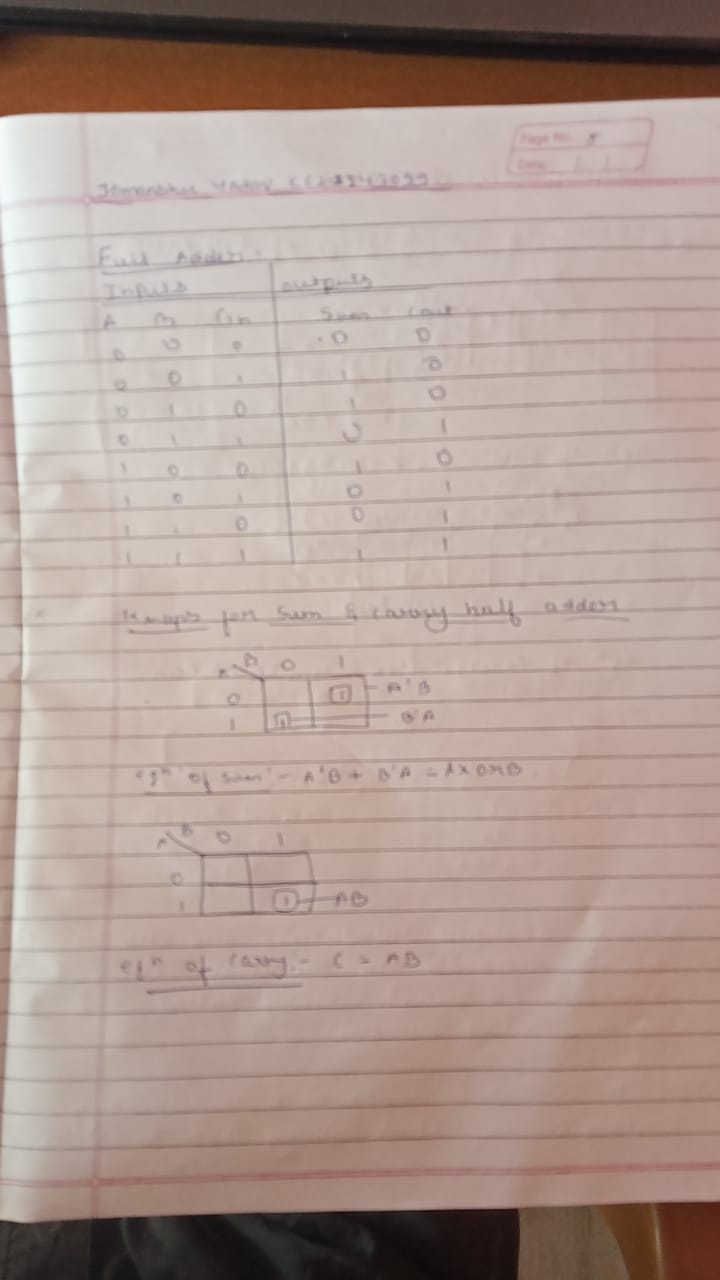 Page No. 5
Date / /
Full Adder.
Inputs outputs
A B Cin Sum Cout
0 0 0 0 0
0 0 1 1 0
0 1 0 1 0
0 1 1 0 1
1 0 0 1 0
1 0 1 0 1
1 1 0 0 1
1 1 1 1 1
Kmaps for Sum & carry half adder
A B 0 1
0 1 A'B
1 1 B'A
eqn of sum:- A'B + B'A = A XOR B
A B 0 1
0
1 1 AB
eqn of carry:- C = AB